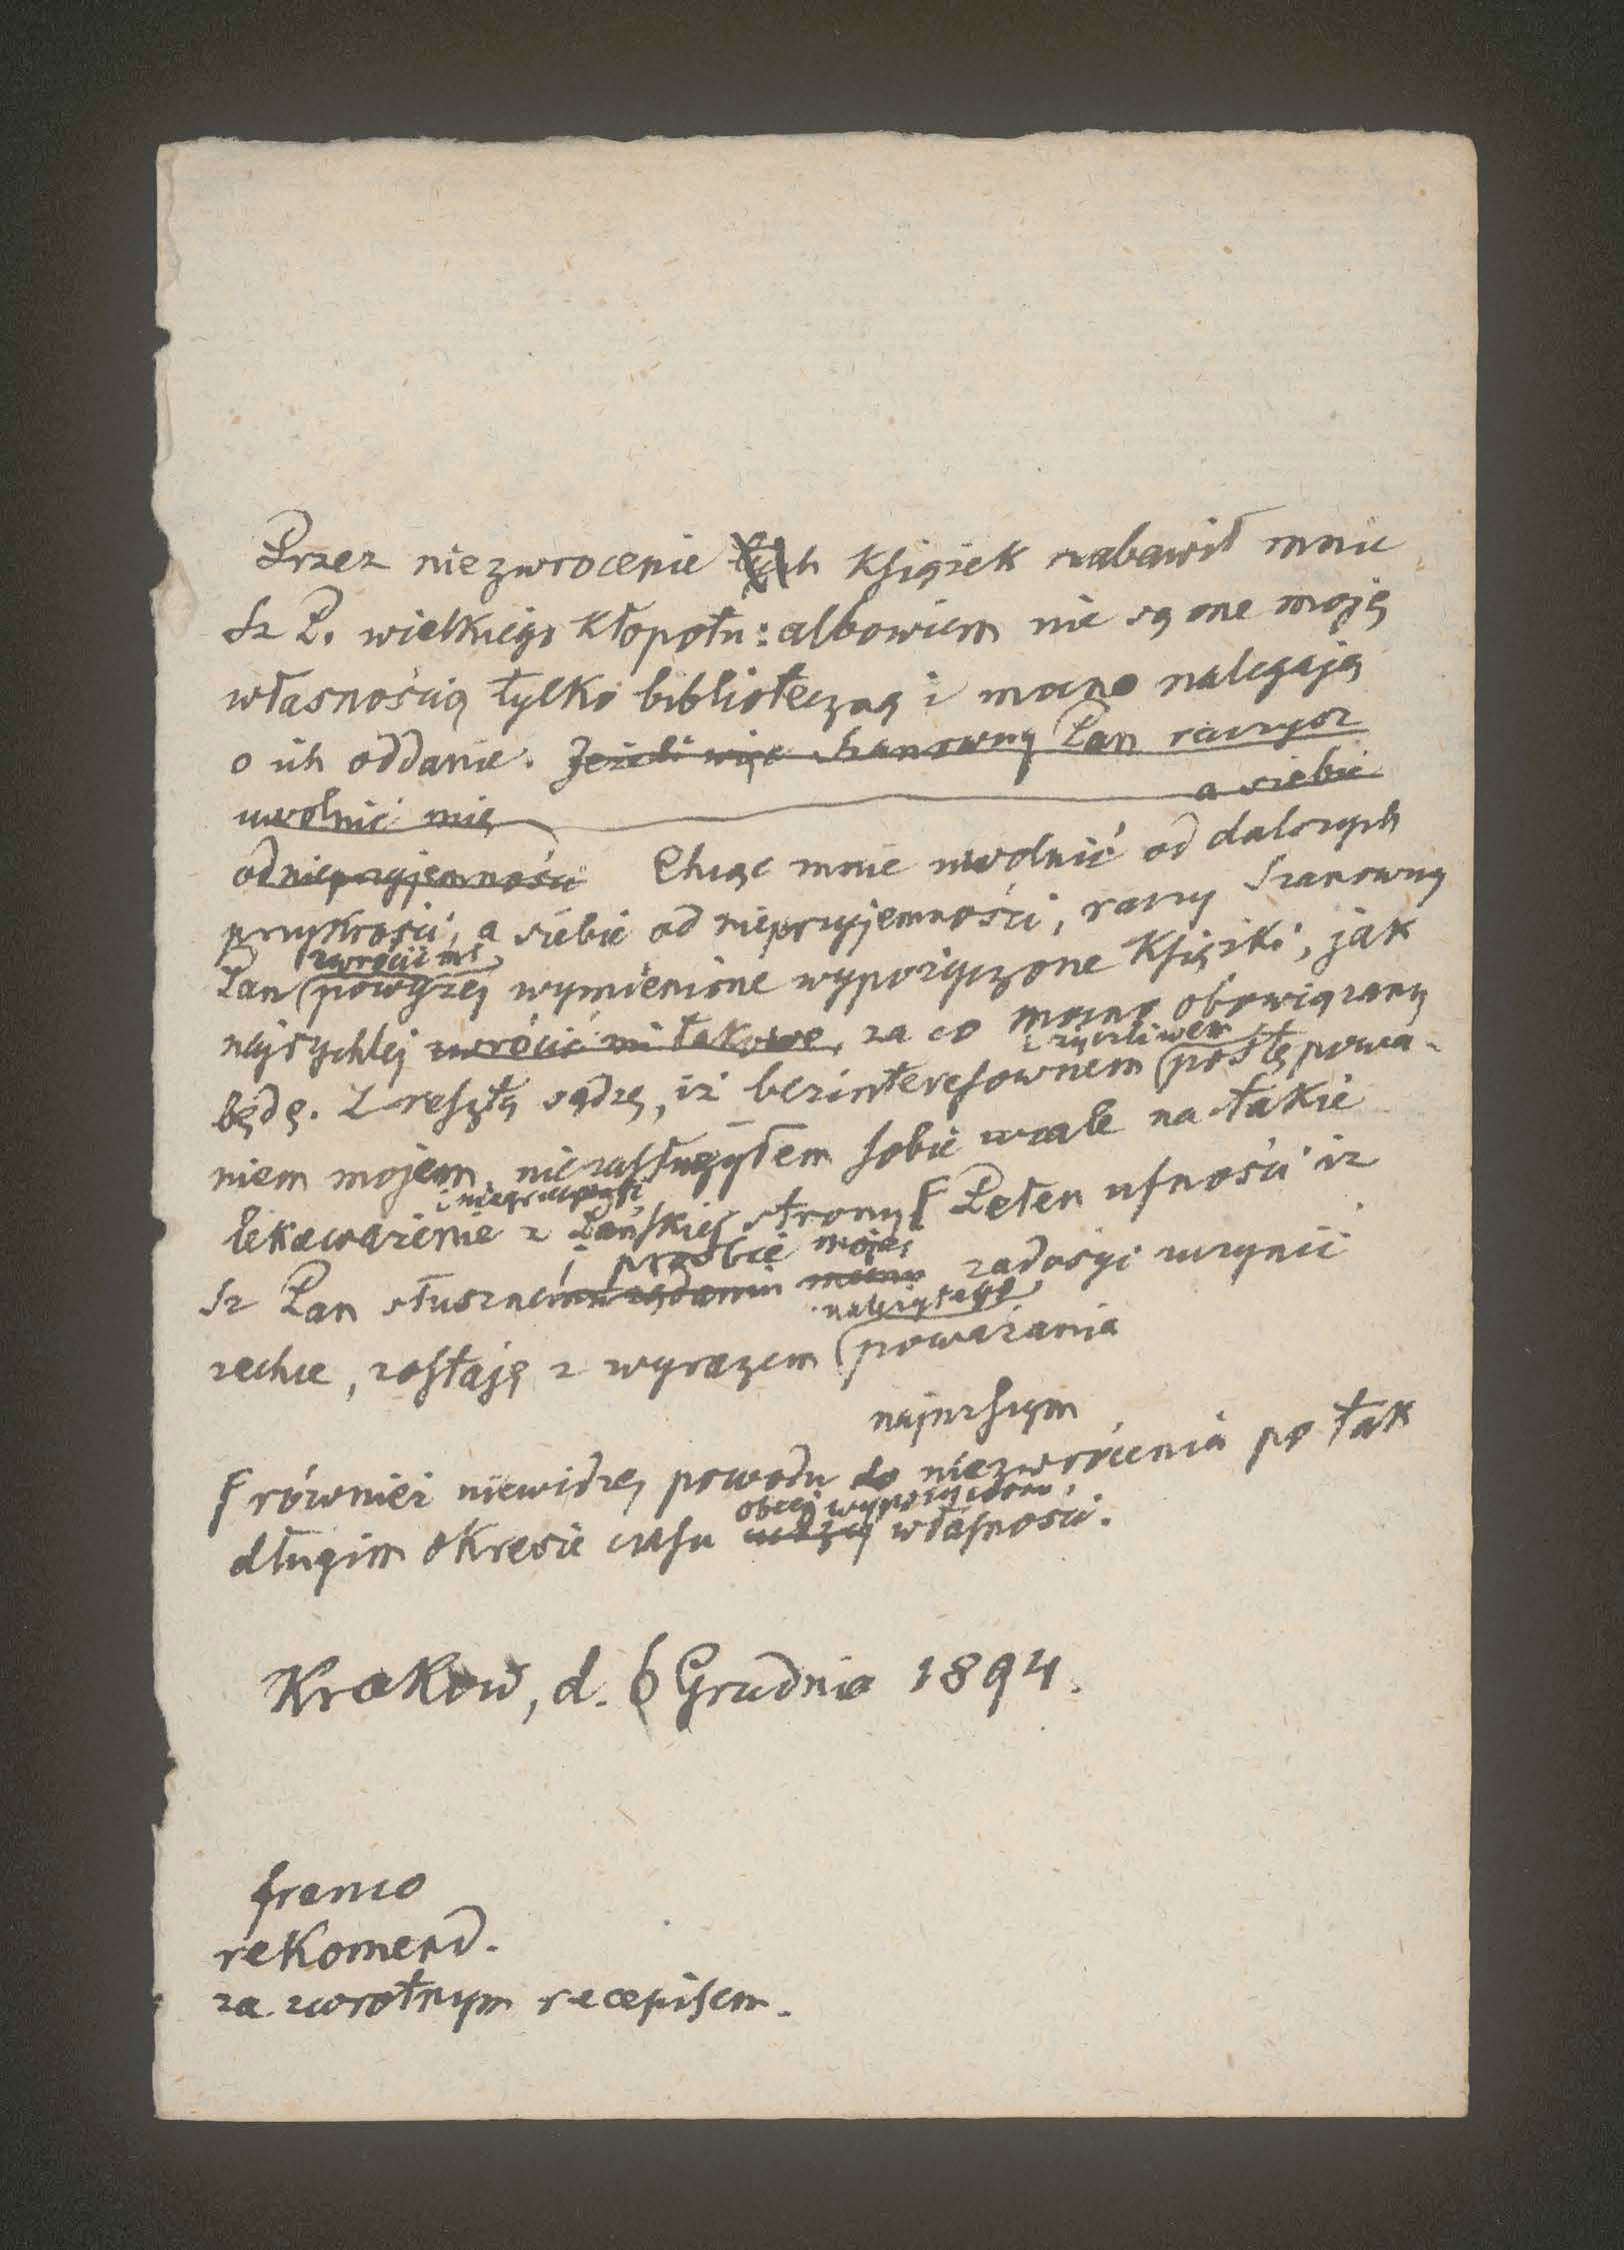 Przez niezwrocenie tych książek nabawił mnie
Sz P. wielkiego kłopotu: albowiem nie są one moją
własnością tylko biblioteczną i mocno nalegają
o ich oddanie. Jeżeli więc Szanowny Pan raczysz
uwolnić mię a siebie
od nieprzyjemności Chcąc mnie uwolnić od dalszych
przykrości, a siebie od nieprzyjemności, raczy Szanowny
zwrócić mi
Pan powyżej wymienione wypożyczone książki, jak
najrychlej zwrócić mi takowe, za co mocno obowiązany
i życzliwem
będę. Zresztą sądzę, iż bezinteresownem postępowa-
niem mojem, niezasłużyłem sobie wcale na takie
i niegrzeczność
lekceważenie z Pańskiej strony Pełen ufności iż
i prośbie mojej
Sz Pan słusznemu żądaniu memu zadosyć uczynić
należytego
zechce, zostaję z wyrazem poważania
najmniejszym
również niewidzę powodu do niezwrócenia po tak
obcej wypożyczonej
długim okresie czasu cudzej własności.
Krakow, d. 6 Grudnia 1894.
franco
rekomend.
za zwrotnym recepisem.